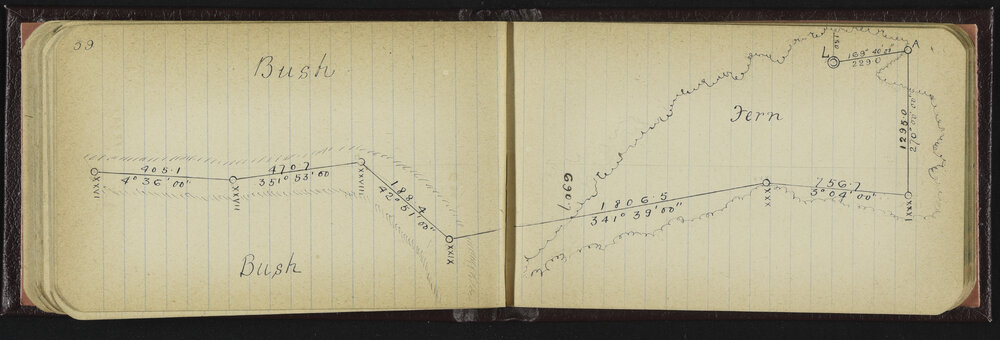 59
Bush
405·1
4° 36' 00"
XXVII
470·7
351° 53' 00
XXVIII
188·4
42° 51' 00"
XXIX
Bush
Fern
690·7
1806·5
341° 39' 00"
XXX
756·7
3° 04' 00"
XXXI
1295·0
270° 00' 00"
A
169° 40' 00"
229·0
L